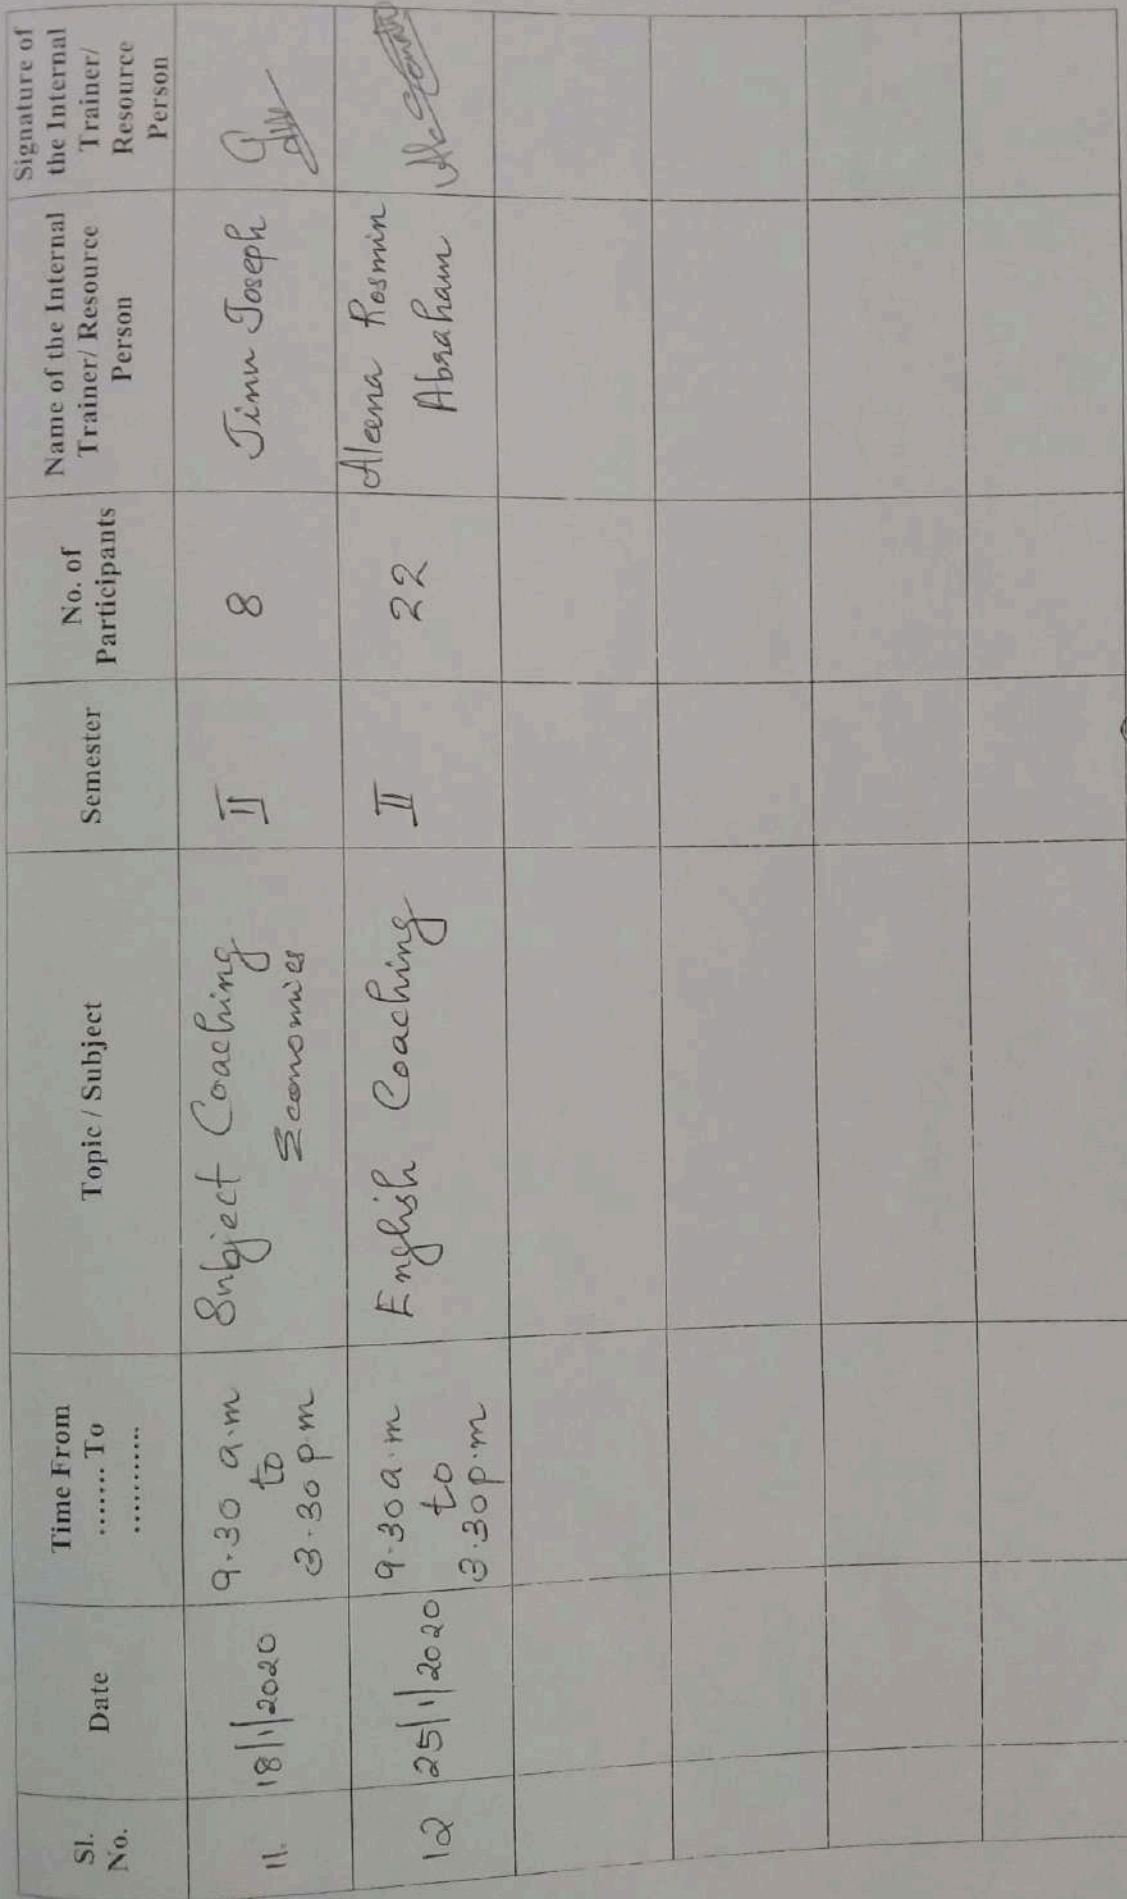 Sl.
No.
Date
Time From
....... To
...........
Topic / Subject
Semester
No. of
Participants
Name of the Internal
Trainer/ Resource
Person
Signature of
the Internal
Trainer/
Resource
Person
11.
18/1/2020
9.30 a.m
to
3.30 p.m
Subject Coaching
Economics
II
8
Jinu Joseph
12
25/1/2020
9.30 a.m
to
3.30 p.m
English Coaching
II
22
Aleena Rosmin
Abraham